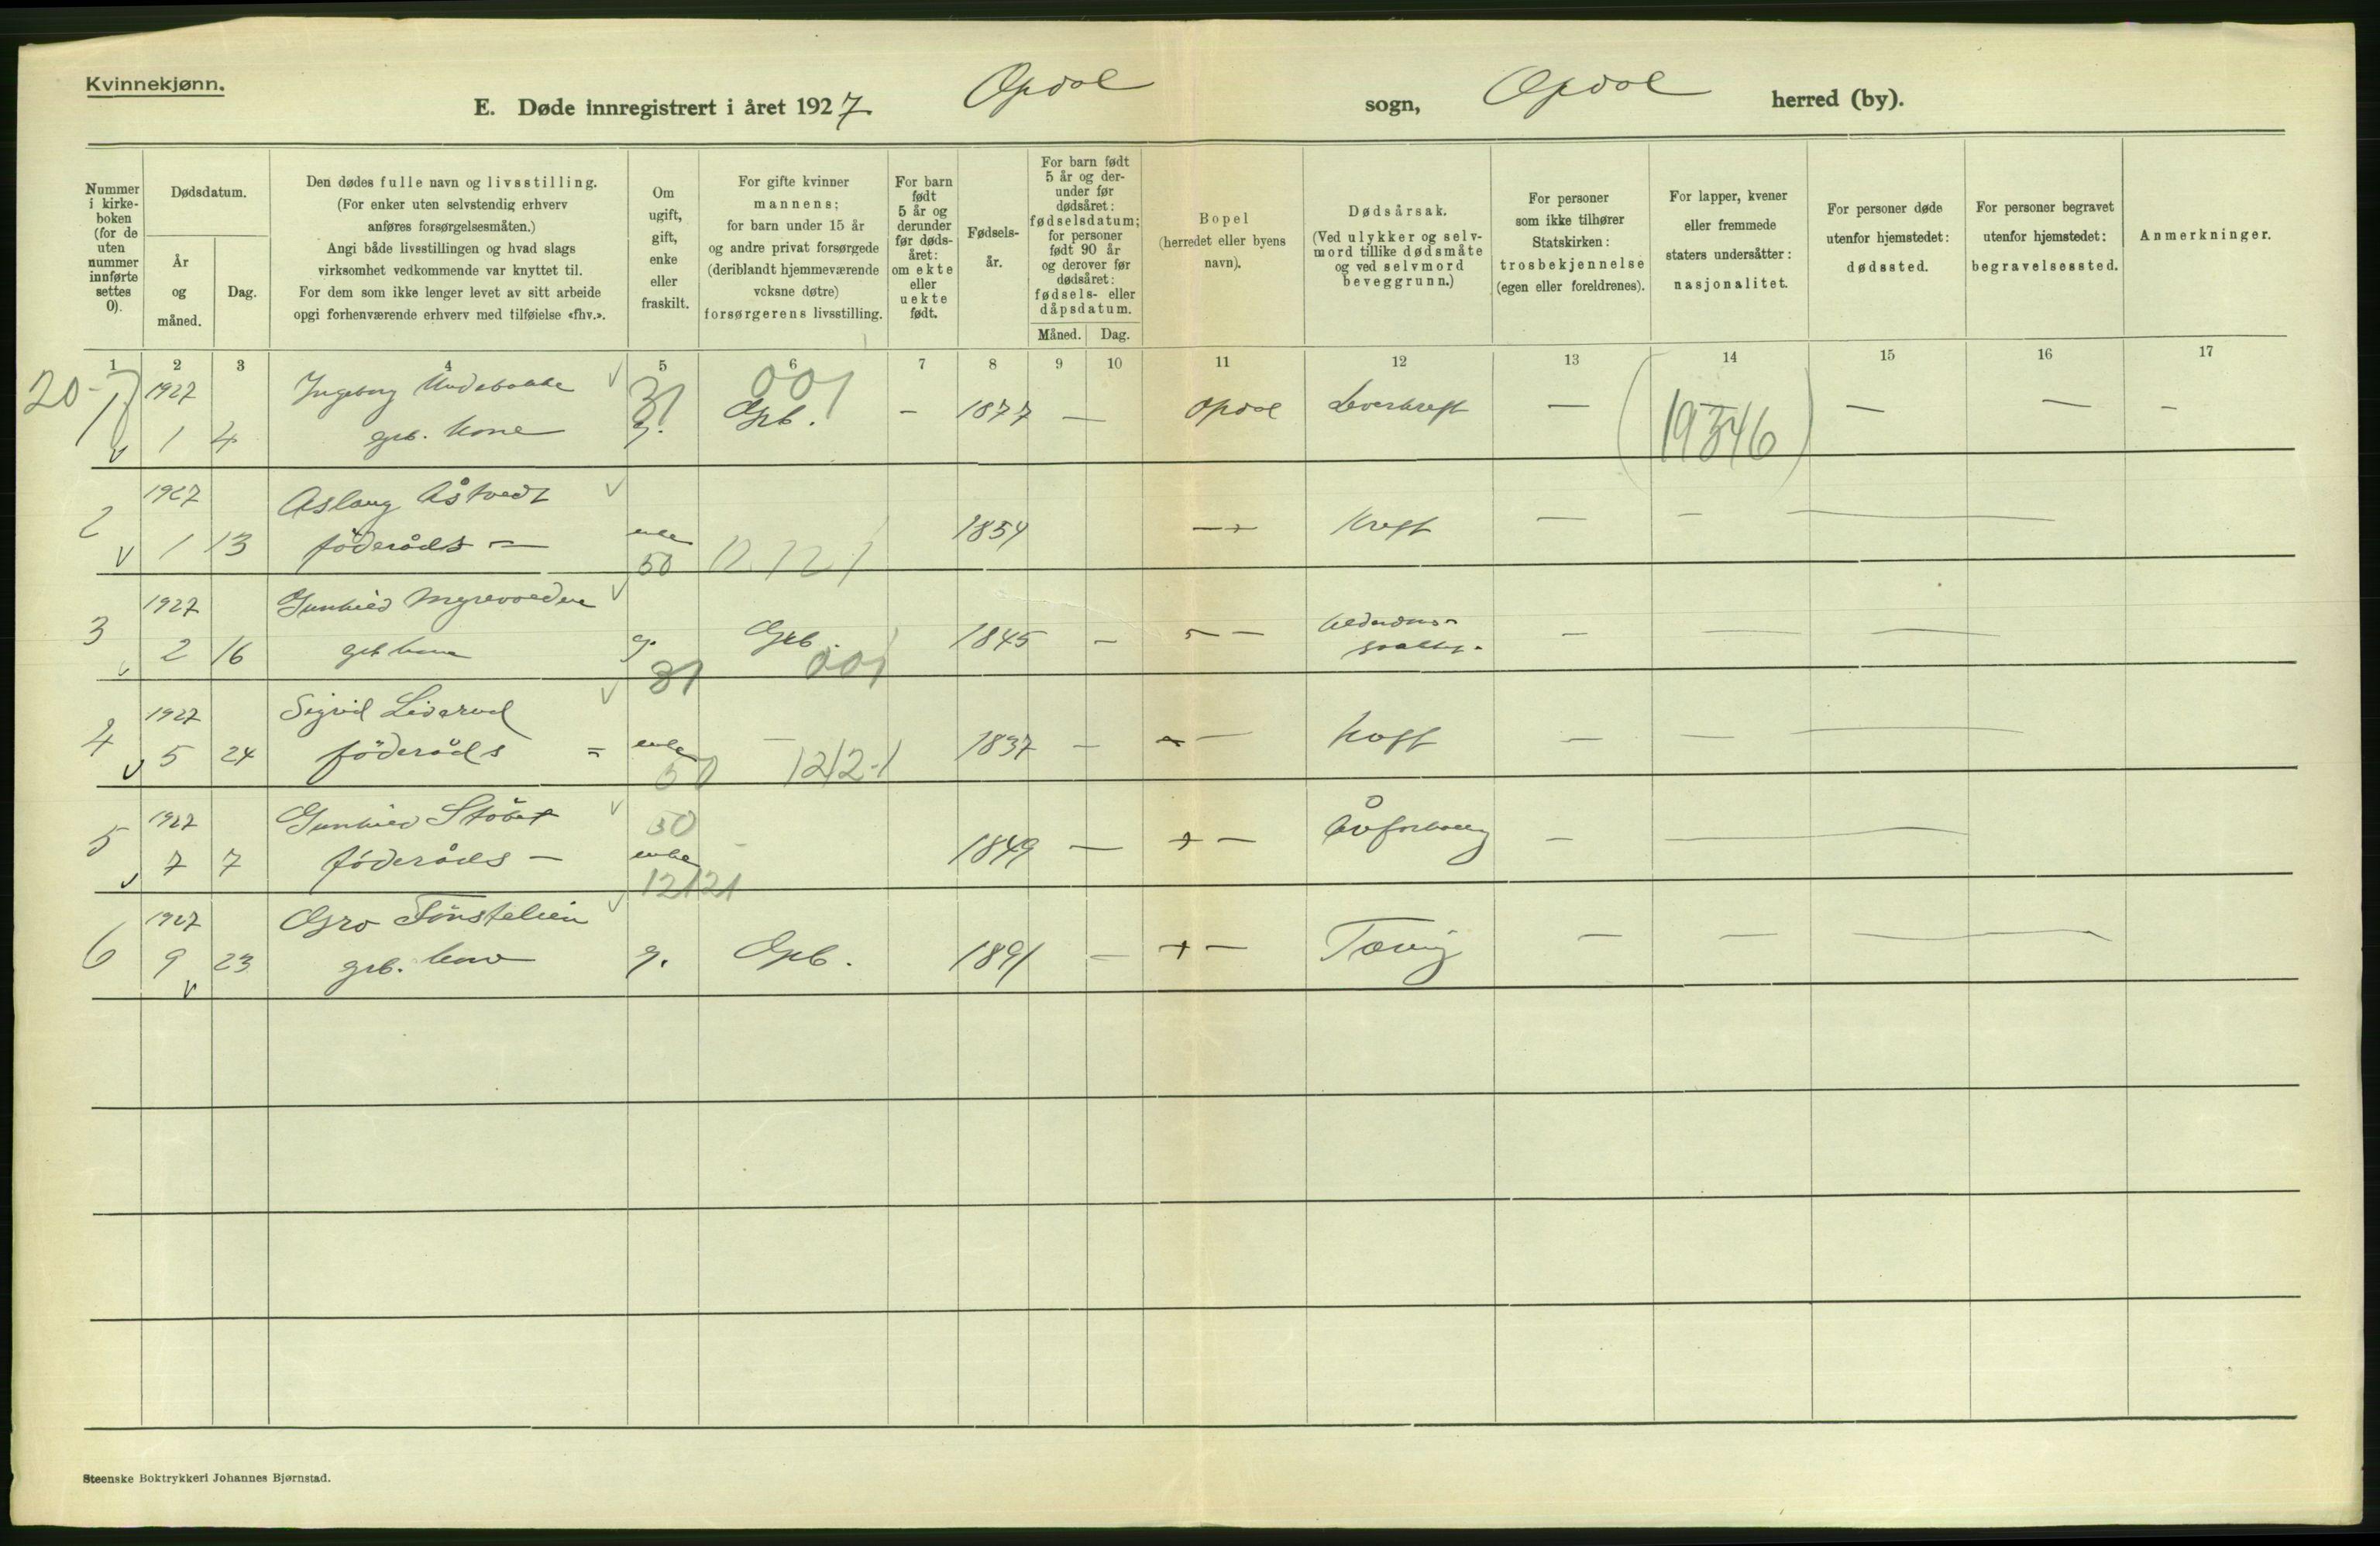 Kvinnekjønn.
E. Døde innregistrert i året 1927 Opdal sogn, Opdal herred (by).
Nummer i kirke-boken (for de uten nummer innførte settes 0).
Dødsdatum.
År og måned.
Dag.
Den dødes fulle navn og livsstilling.
(For enker uten selvstendig erhverv
anføres forsørgelsesmåten.)
Angi både livsstillingen og hvad slags
virksomhet vedkommende var knyttet til.
For dem som ikke lenger levet av sitt arbeide
opgi forhenværende erhverv med tilføielse «fhv.».
Om ugift, gift, enke eller fraskilt.
For gifte kvinner
mannens;
for barn under 15 år
og andre privat forsørgede
(deriblandt hjemmeværende
voksne døtre)
forsørgerens livsstilling.
For barn født 5 år og derunder før døds-året: om ekte eller uekte født.
Fødsels-år.
For barn født 5 år og der-under før dødsåret: fødselsdatum; for personer født 90 år og derover før dødsåret: fødsels- eller dåpsdatum.
Måned. Dag.
Bopel
(herredet eller byens
navn).
Dødsårsak.
(Ved ulykker og selv-
mord tillike dødsmåte
og ved selvmord
beveggrunn.)
For personer
som ikke tilhører
Statskirken:
trosbekjennelse
(egen eller foreldrenes).
For lapper, kvener
eller fremmede
staters undersåtter:
nasjonalitet.
For personer døde
utenfor hjemstedet:
dødssted.
For personer begravet
utenfor hjemstedet:
begravelsessted.
Anmerkninger.
1 2 3 4 5 6 7 8 9 10 11 12 13 14 15 16 17
20-
1 1927 Ingeborg 31 001
1 4 grb. kone g. Grb. - 1877 — Opdal Leverkreft — — — -
(19346)
2 1927 Aslaug Åstvedt
1 13 föderåds — enke 1854 — Kreft — —
50 12 12 1
3 1927 Gunhild
2 16 grb kone g. Grb. 1845 — — Alderdoms-
31 001
4 1927 Sigrid Liverud
5 24 föderåds = enke — 1837 — — Kreft — —
50 12/2-1
5 1927 Gunhild 50
7 7 föderåds — enke - 1849 — — —
12121
6 1927 Gro Tönstelien
9 23 grb. kone g. Grb. 1891 — — Tæring — —
Steenske Boktrykkeri Johannes Bjørnstad.